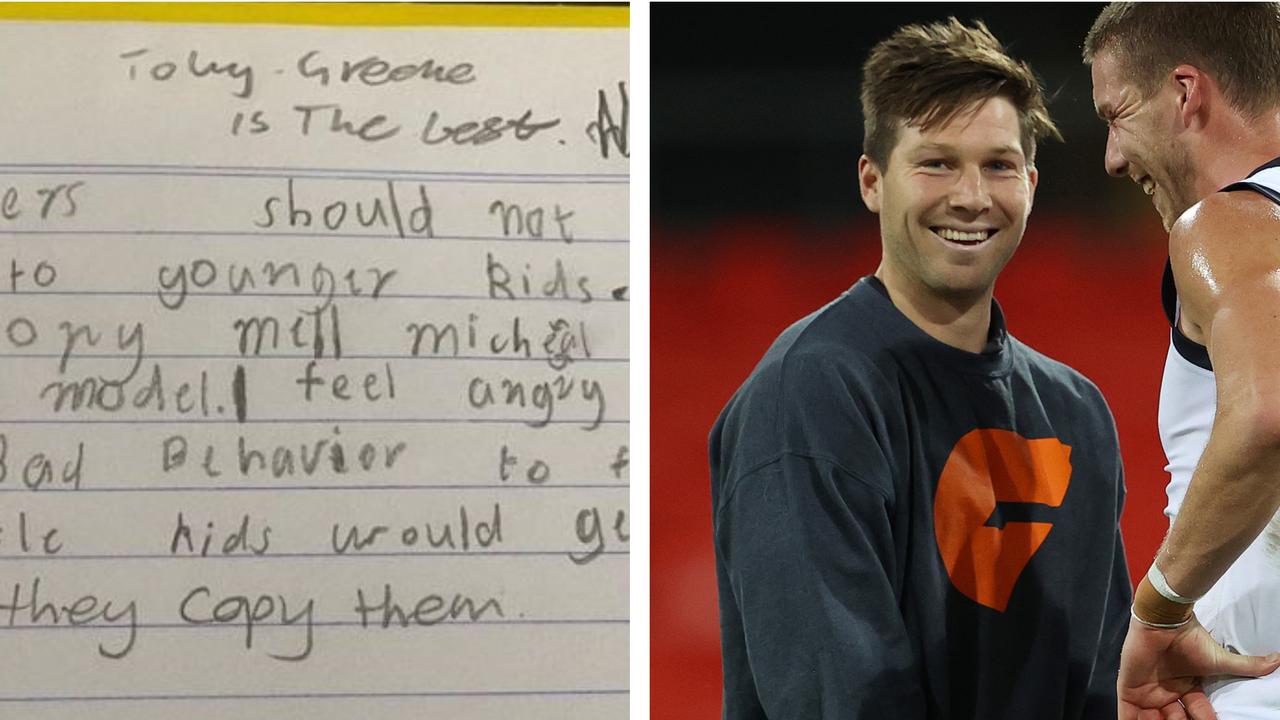 Toby Greene
is The best.
ers should not
to younger kids.
opy mill micheal
model. I feel angry
Bad Behavior to f
le kids would ge
they copy them.